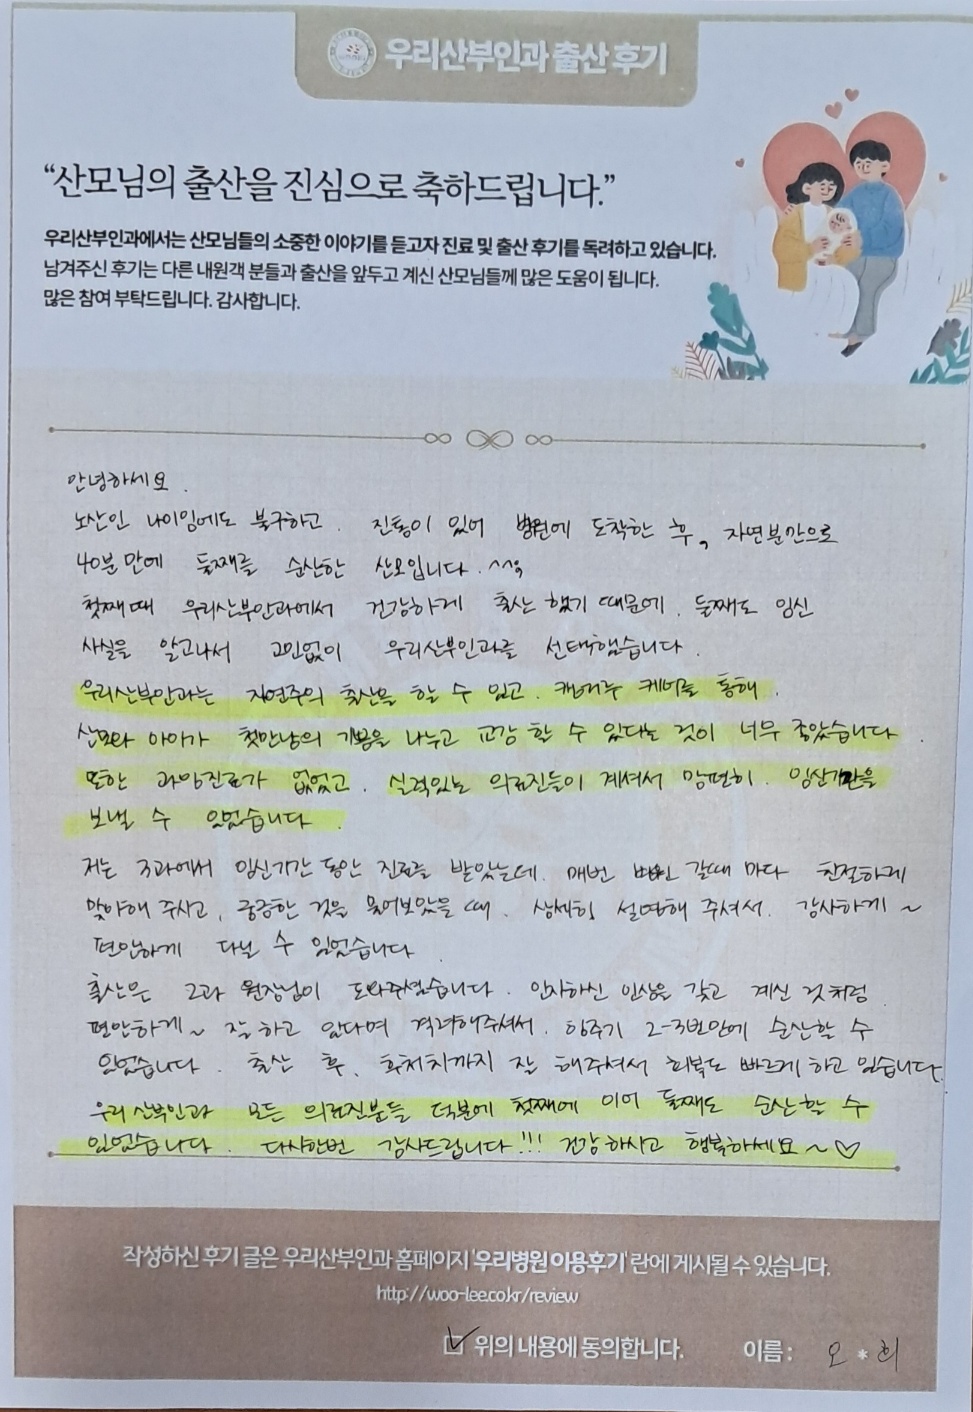 우리산부인과 출산 후기
“산모님의 출산을 진심으로 축하드립니다.”
우리산부인과에서는 산모님들의 소중한 이야기를 듣고자 진료 및 출산 후기를 독려하고 있습니다.
남겨주신 후기는 다른 내원객 분들과 출산을 앞두고 계신 산모님들께 많은 도움이 됩니다.
많은 참여 부탁드립니다. 감사합니다.
안녕하세요.
노산인 나이임에도 불구하고. 진통이 있어 병원에 도착한 후, 자연분만으로
40분 만에 둘째를 순산한 산모입니다. ^^;
첫째때 우리산부인과에서 건강하게 출산 했기 때문에. 둘째도 임신
사실을 알고나서 고민없이 우리산부인과를 선택했습니다.
우리산부인과는 자연주의 출산을 할 수 있고. 캥거루 케어를 통해.
산모와 아이가 첫만남의 기쁨을 나누고 교감 할 수 있다는 것이 너무 좋았습니다.
또한 과잉진료가 없었고. 실력있는 의료진들이 계셔서 맘편히. 임신기간을
보낼 수 있었습니다.
저는 3과에서 임신기간 동안 진료를 받았는데. 매번 병원 갈때 마다 친절하게
맞이해 주시고, 궁금한 것을 물어보았을 때. 상세히 설명해 주셔서. 감사하게 ~
편안하게 다닐 수 있었습니다.
출산은 2과 원장님이 도와주셨습니다. 인자하신 인상을 갖고 계신 것처럼.
편안하게~ 잘 하고 있다며 격려해주셔서. 힘주기 2-3번만에 순산할 수
있었습니다. 출산 후, 후처치까지 잘 해주셔서 회복도 빠르게 하고 있습니다.
우리 산부인과 모든 의료진분들 덕분에 첫째에 이어 둘째도 순산할 수
있었습니다. 다시한번 감사드립니다!!! 건강하시고 행복하세요~♡
작성하신 후기 글은 우리산부인과 홈페이지 '우리병원 이용후기' 란에 게시될 수 있습니다.
http://woo-lee.co.kr/review
☑ 위의 내용에 동의합니다. 이름 : 오 * 희